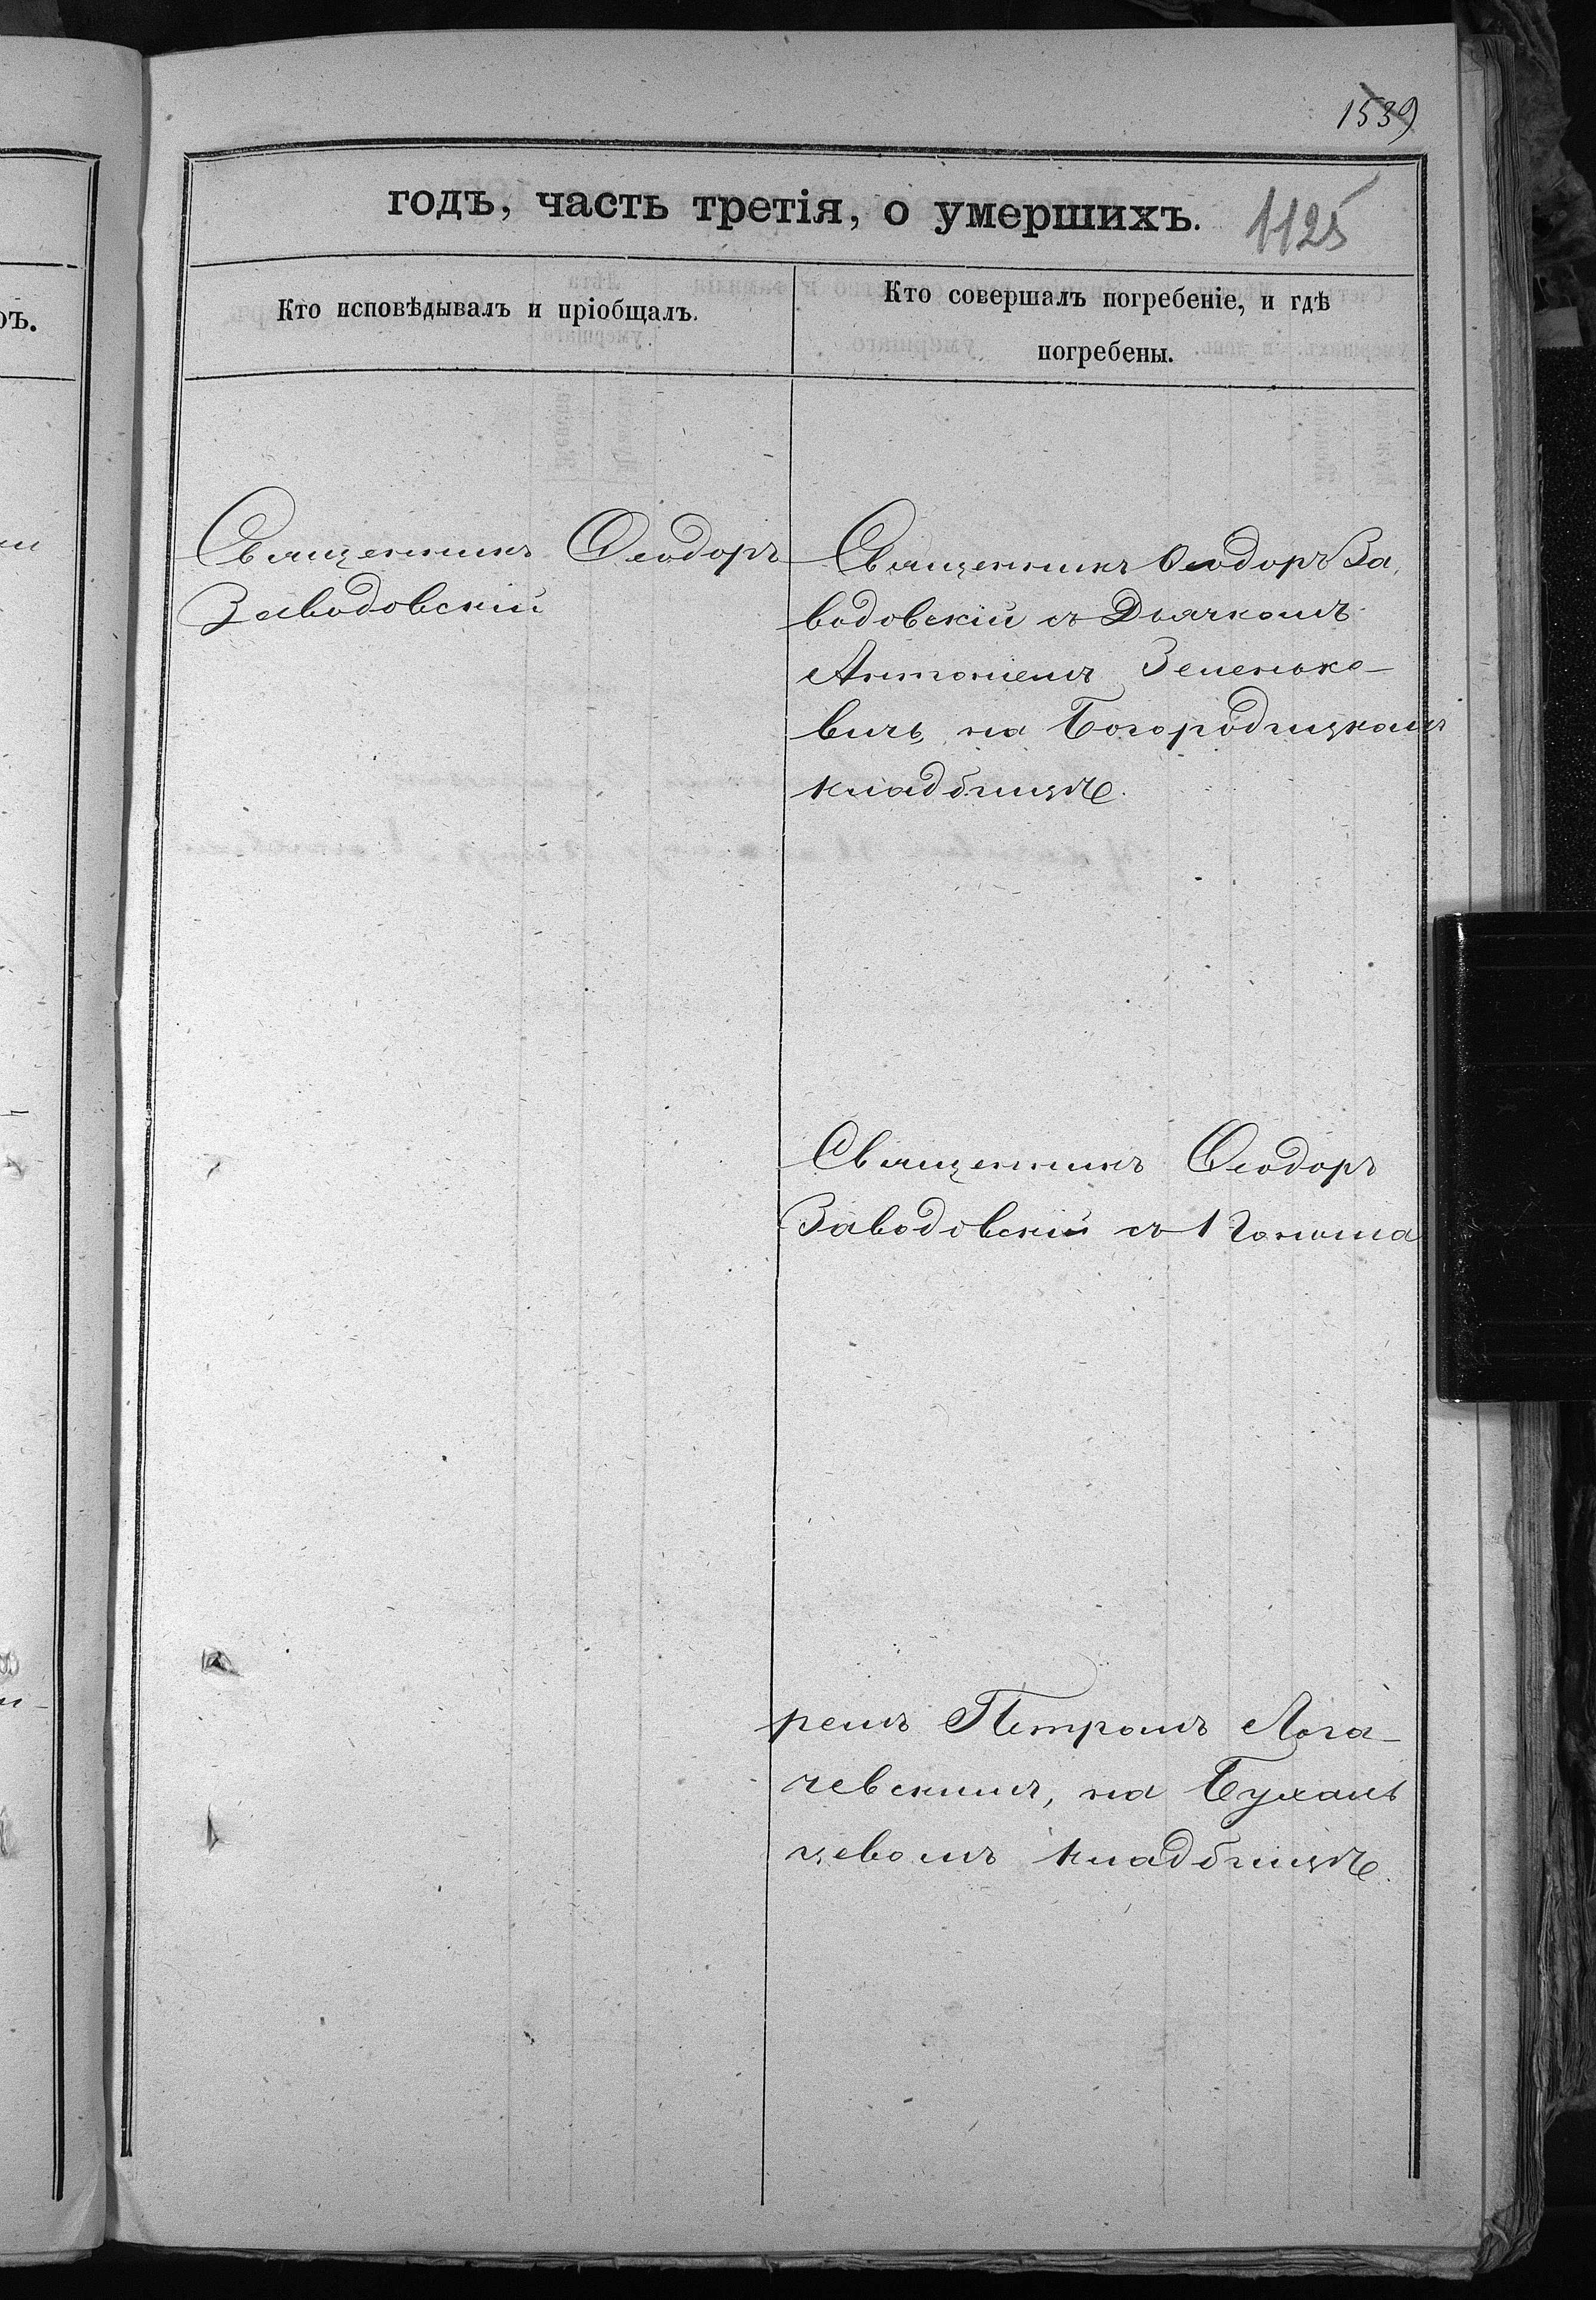 1539
годъ, часть третія, о умершихъ. 1125
Кто исповѣдывалъ и пріобщалъ.
Кто совершалъ погребеніе, и гдѣ
погребены.
Священникъ Ѳеодоръ
Заводовскій
Священникъ Ѳеодоръ За,
водовскій съ Дьячкомъ
Антоніемъ Зенонько-
вичъ, на Богородицкомъ
кладбищѣ.
Священникъ Ѳеодоръ
Заводовскій съ Понома
ремъ Петромъ Лога-
чевскимъ, на
цевомъ кладбищѣ.